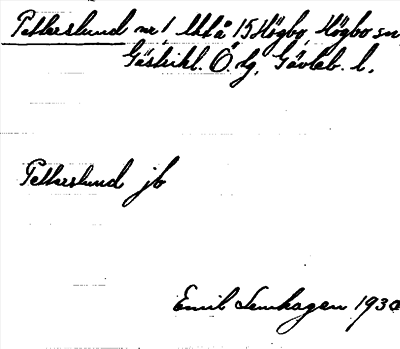 Petterslund nr 1 Utå 15 Högbo, Högbo sn,
Gästrikl. Ö. dg, Gävleb. l.
Petterslund jb
Emil Lenhagen 1930